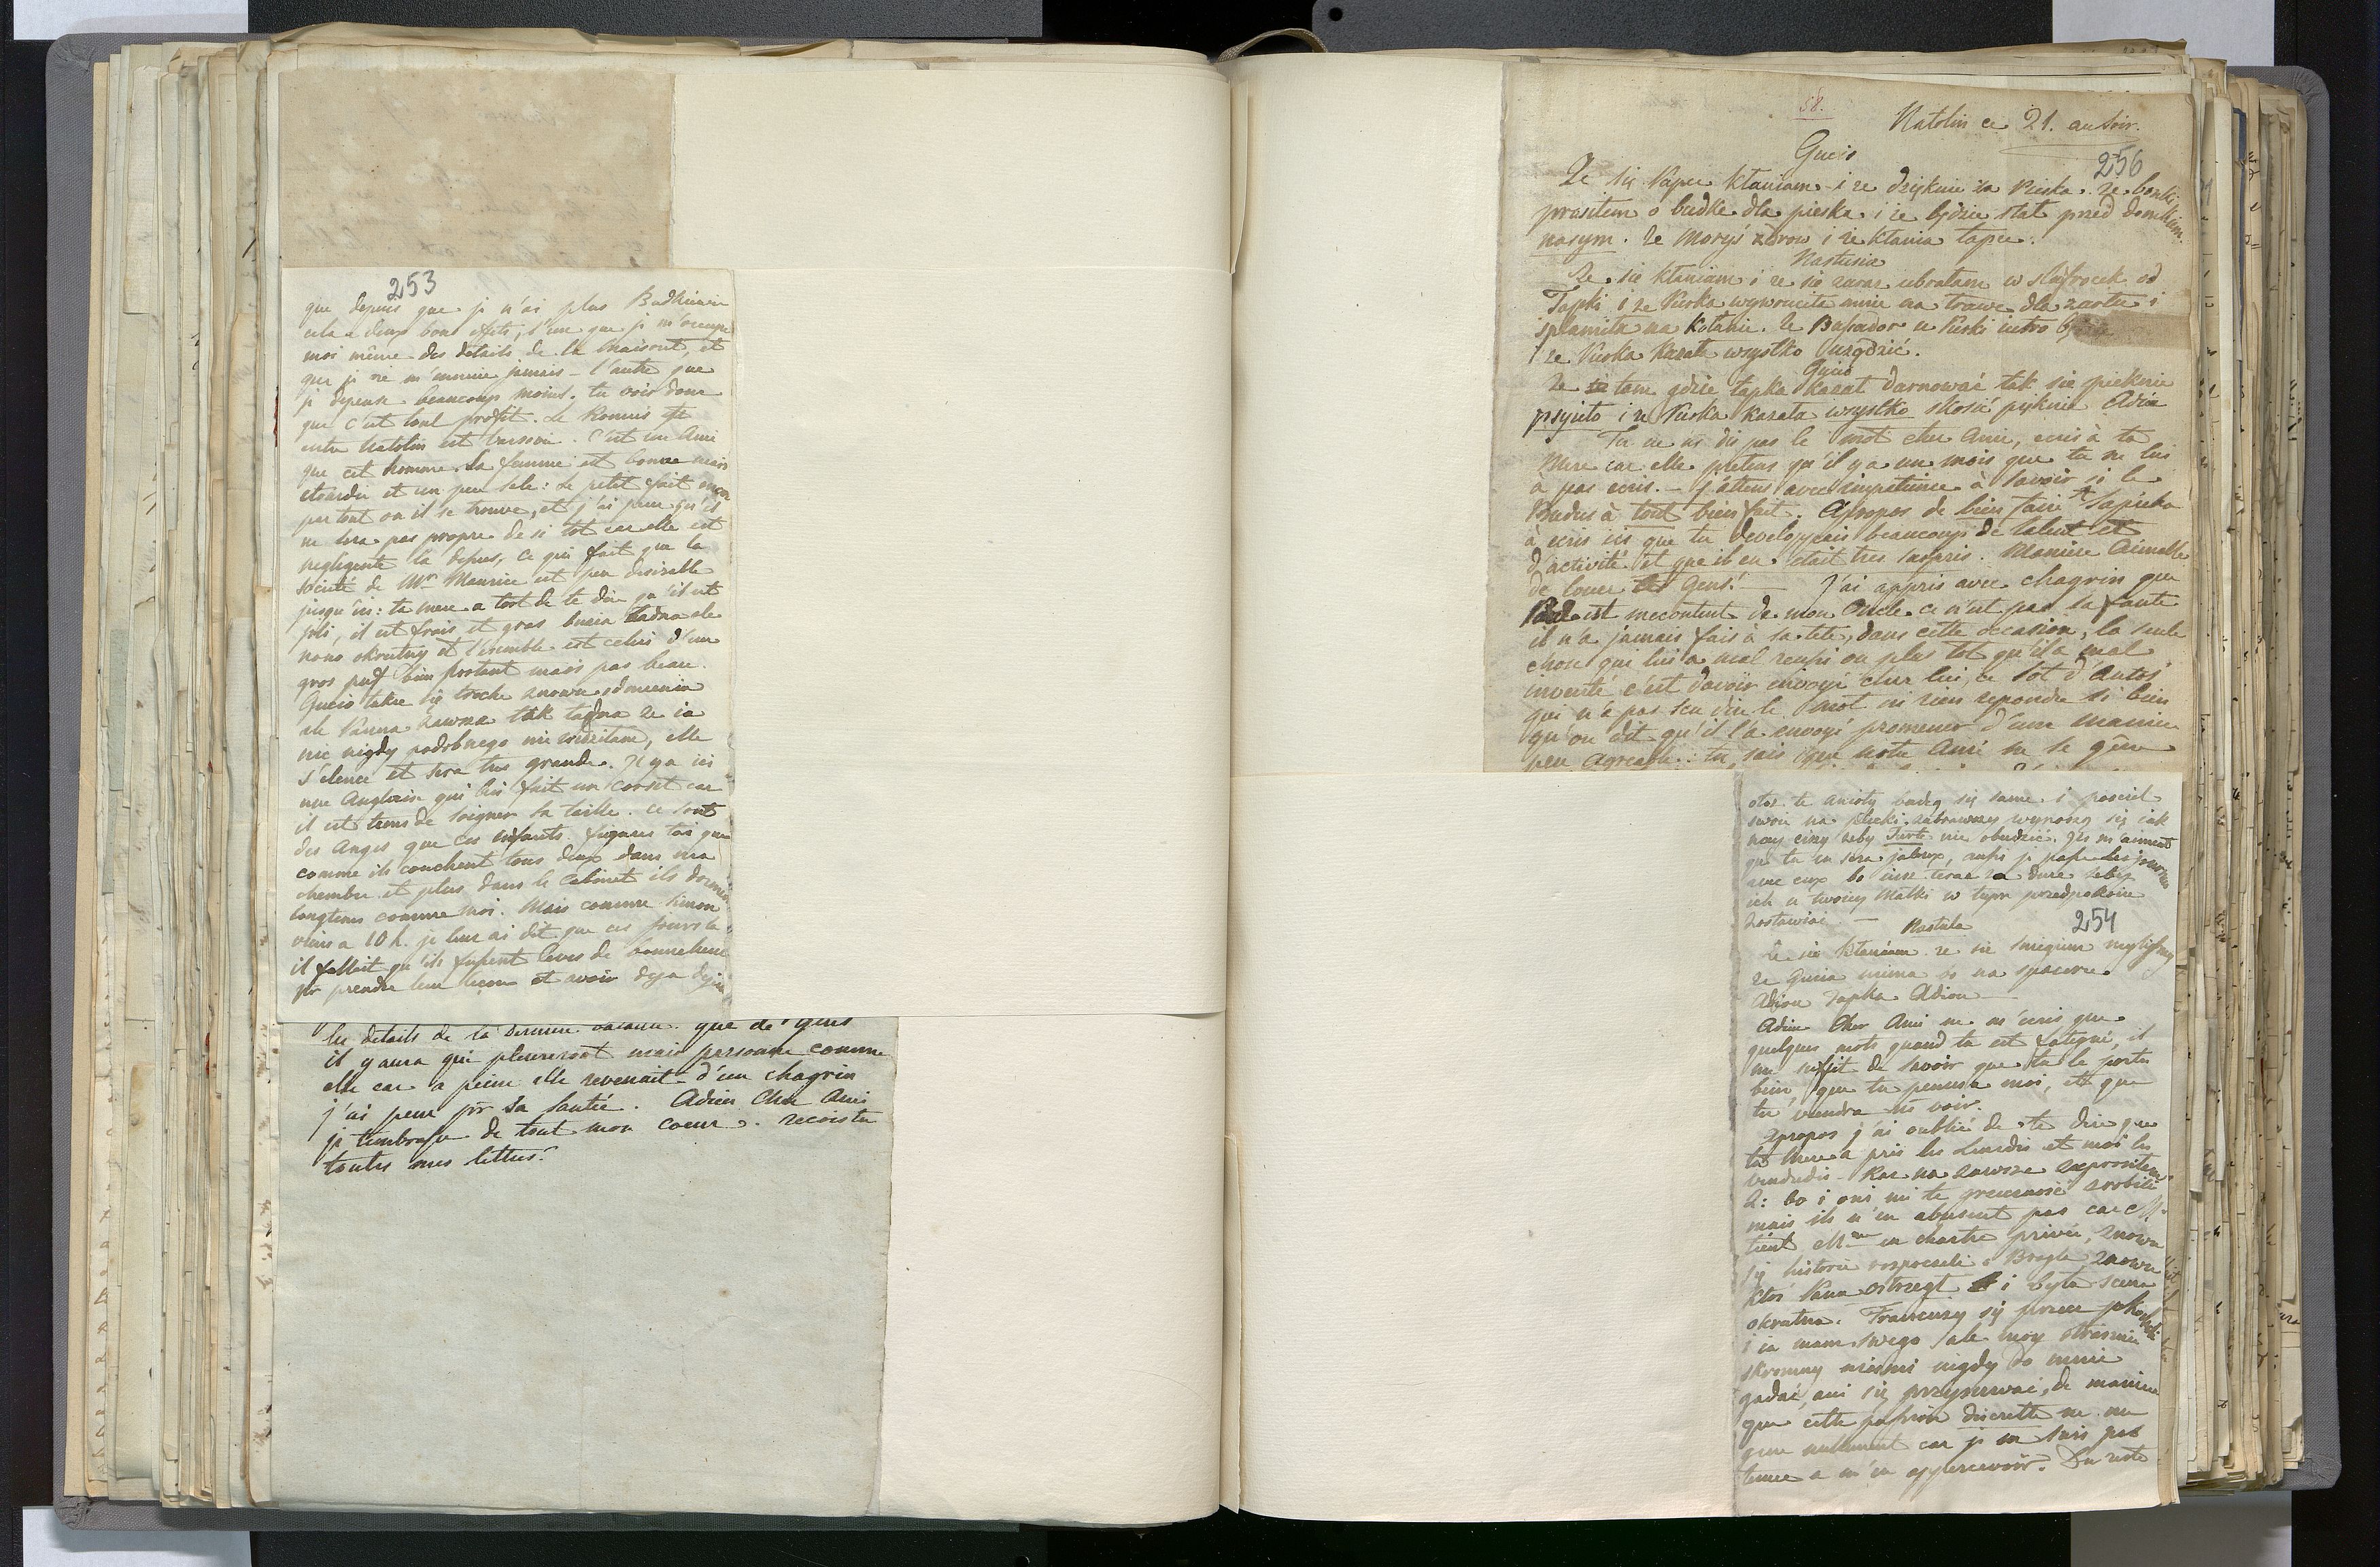 253
que depuis que je n'ai plus Badkiewin
cela a deux bons effets, l'un que je m'occupe
moi même des détails de la maison, et
que je ne m'ennuie jamais – l'autre que
je depense beaucoup moins. tu vois donc
que c'est tout profit. Le
entre Natolin et C'est un Ami
que cet homme. La femme est bonne mais
etourdie et un peu sale: Le petit fait encor
partout ou il se trouve, et j'ai peur qu'il
ne sera pas propre de si tot car elle est
negligente la depus, ce qui fait que la
société de Mr Maurice est peu desirable
jusqu'ici: ta mere a tort de te dire qu'il est
joli, il est frais et gras buzia ładna ale
nono okrutny et l'ensemble est celui d'un
gros puf bien portant mais pas beau.
Gucio także się troche znowu odmienia
ale Panna zawsze tak ładna ze ia
nic nigdy podobnego nie widziałam, elle
s'elence et sera tres grande. Il y a ici
une Anglaise qui lui fait un corset car
il est tems de soigner sa taille. Ce sont
des Anges que ces enfants. figures toi que
comme ils couchent tous deux dans ma
chambre et plus dans le Cabinet ils dorment
longtems comme moi. Mais comme Simon
viens a 10 h. je leur ai dit que ces jours la
il falloit qu'ils fussent leves de bonne heure
pr prendre leur leçon et avoir deja dejeu
les details de la derniere que de gens
il y aura qui pleureront mais personne comme
elle car a peine elle revenait d'un chagrin
j'ai peur pr sa santée. Adieu Cher Ami
je t'embrasse de tout mon coeur. recois tu
toutes mes lettres?
58.
Natolin ce 21. au Soir.
256
Gucio
Ze się Papce kłaniam i ze dziękuie za Pieska. Ze
prosiłem o budke dla pieska i ze będzie stał przed domkiem
naszym. Ze Moryś zdrow i ze kłania tapce.
Nastusia
Ze sie kłaniam i ze sie zaraz ubrałam w szlafrocek od
Tapki i ze Piorka wywrociła mnie na trawe dla zartu i
splamiła na kolanie. Ze Bassador u Piorki iutro
i ze Piorka kazała wszystko Purządzić.
Gucio
Ze tam gdzie tapka kazał darnować tak sie spieknie
psyieło i ze Piorka kazała wszystko skosić pięknie Adiu
Tu ne me dis pas le mot cher Amie, ecris à ta
Mere car elle pretens qu'il y a un mois que tu ne lui
a pas ecris. – J'attens avec impatience à savoir si le
Budus à tout bien fait. Apropos de bien faire Sapieha
à ecris ici que tu developpais beaucoup de talent et
d'activité et que il en etait tres surpris. Maniere Aimable
de louer les Gens! — J'ai appris avec chagrin que
est mecontent de mon Oncle. ce n'est pas sa faute
il n'a jamais fais à sa tete, dans cette occasion, la seule
chose qui lui a mal reussi ou plus tot qu'il a mal
inventé c'est d'avoir envoyé chez lui, ce sot d'Antoś
qui n'a pas scu dire le mot ni rien repondre si bien
qu'on dit qu'il l'a envoyé promener d'une maniere
peu agreable: tu sais que notre ami ne se gêne
otoz te anioły budzą się same i posciel
swoie na zabrawszy wynoszą się iak
nay ciszy zeby Turte nie obudzić. Ils m'aiment
que tu en sera jaloux, aussi je passe les journées
avec eux bo
ich u twoiey Matki w tym przedpokoiu
zostawiać — 254
Nastula
Ze sie kłaniam ze sie
ze Gucia nima bo na spacerze.
Adiou Tapka Adiou —
Adieu Cher Ami ne m'ecris que
quelques mots quand tu est fatigué, il
me suffit de savoir que tu te portes
bien, que tu penses a moi, et que
tu viendra ns voir.
Apropos j'ai oublié de te dire que
ta Mere a pris les Lundis et moi les
Vendredis – Raz na zawsze zaprosiłem
bo i oni mi te grzecznosć zrobili
mais ils n'en abusent pas car Mr
tient Mme en chartre privée, znowu
się historie rozpoczeli o Bragla, znowu
ktoś Pana ostrzegł i była scena
okrutna. Francuzy się
i ia mam swego ale moy strasznie
skromny niesmi nigdy do mnie
gadać, ani się przysuwać, de maniere
que cette passion discrette ne me
gene nullement car je ne suis pas
tenue a m'en appercevoir. Du reste